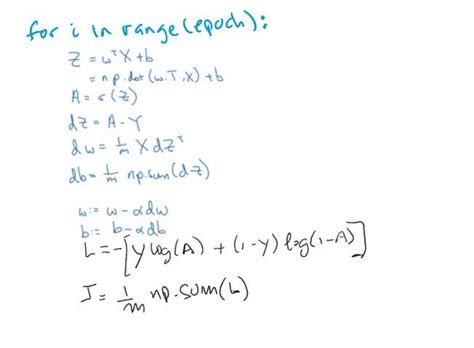 for i in range(epoch):
Z = wᵀX + b
= np.dot(w.T, X) + b
A = σ(Z)
dZ = A - Y
dw = 1/m X dZᵀ
db = 1/m np.sum(dZ)
w := w - αdw
b := b - αdb
L = -[Y log(A) + (1-Y) log(1-A)]
J = 1/m np.sum(L)